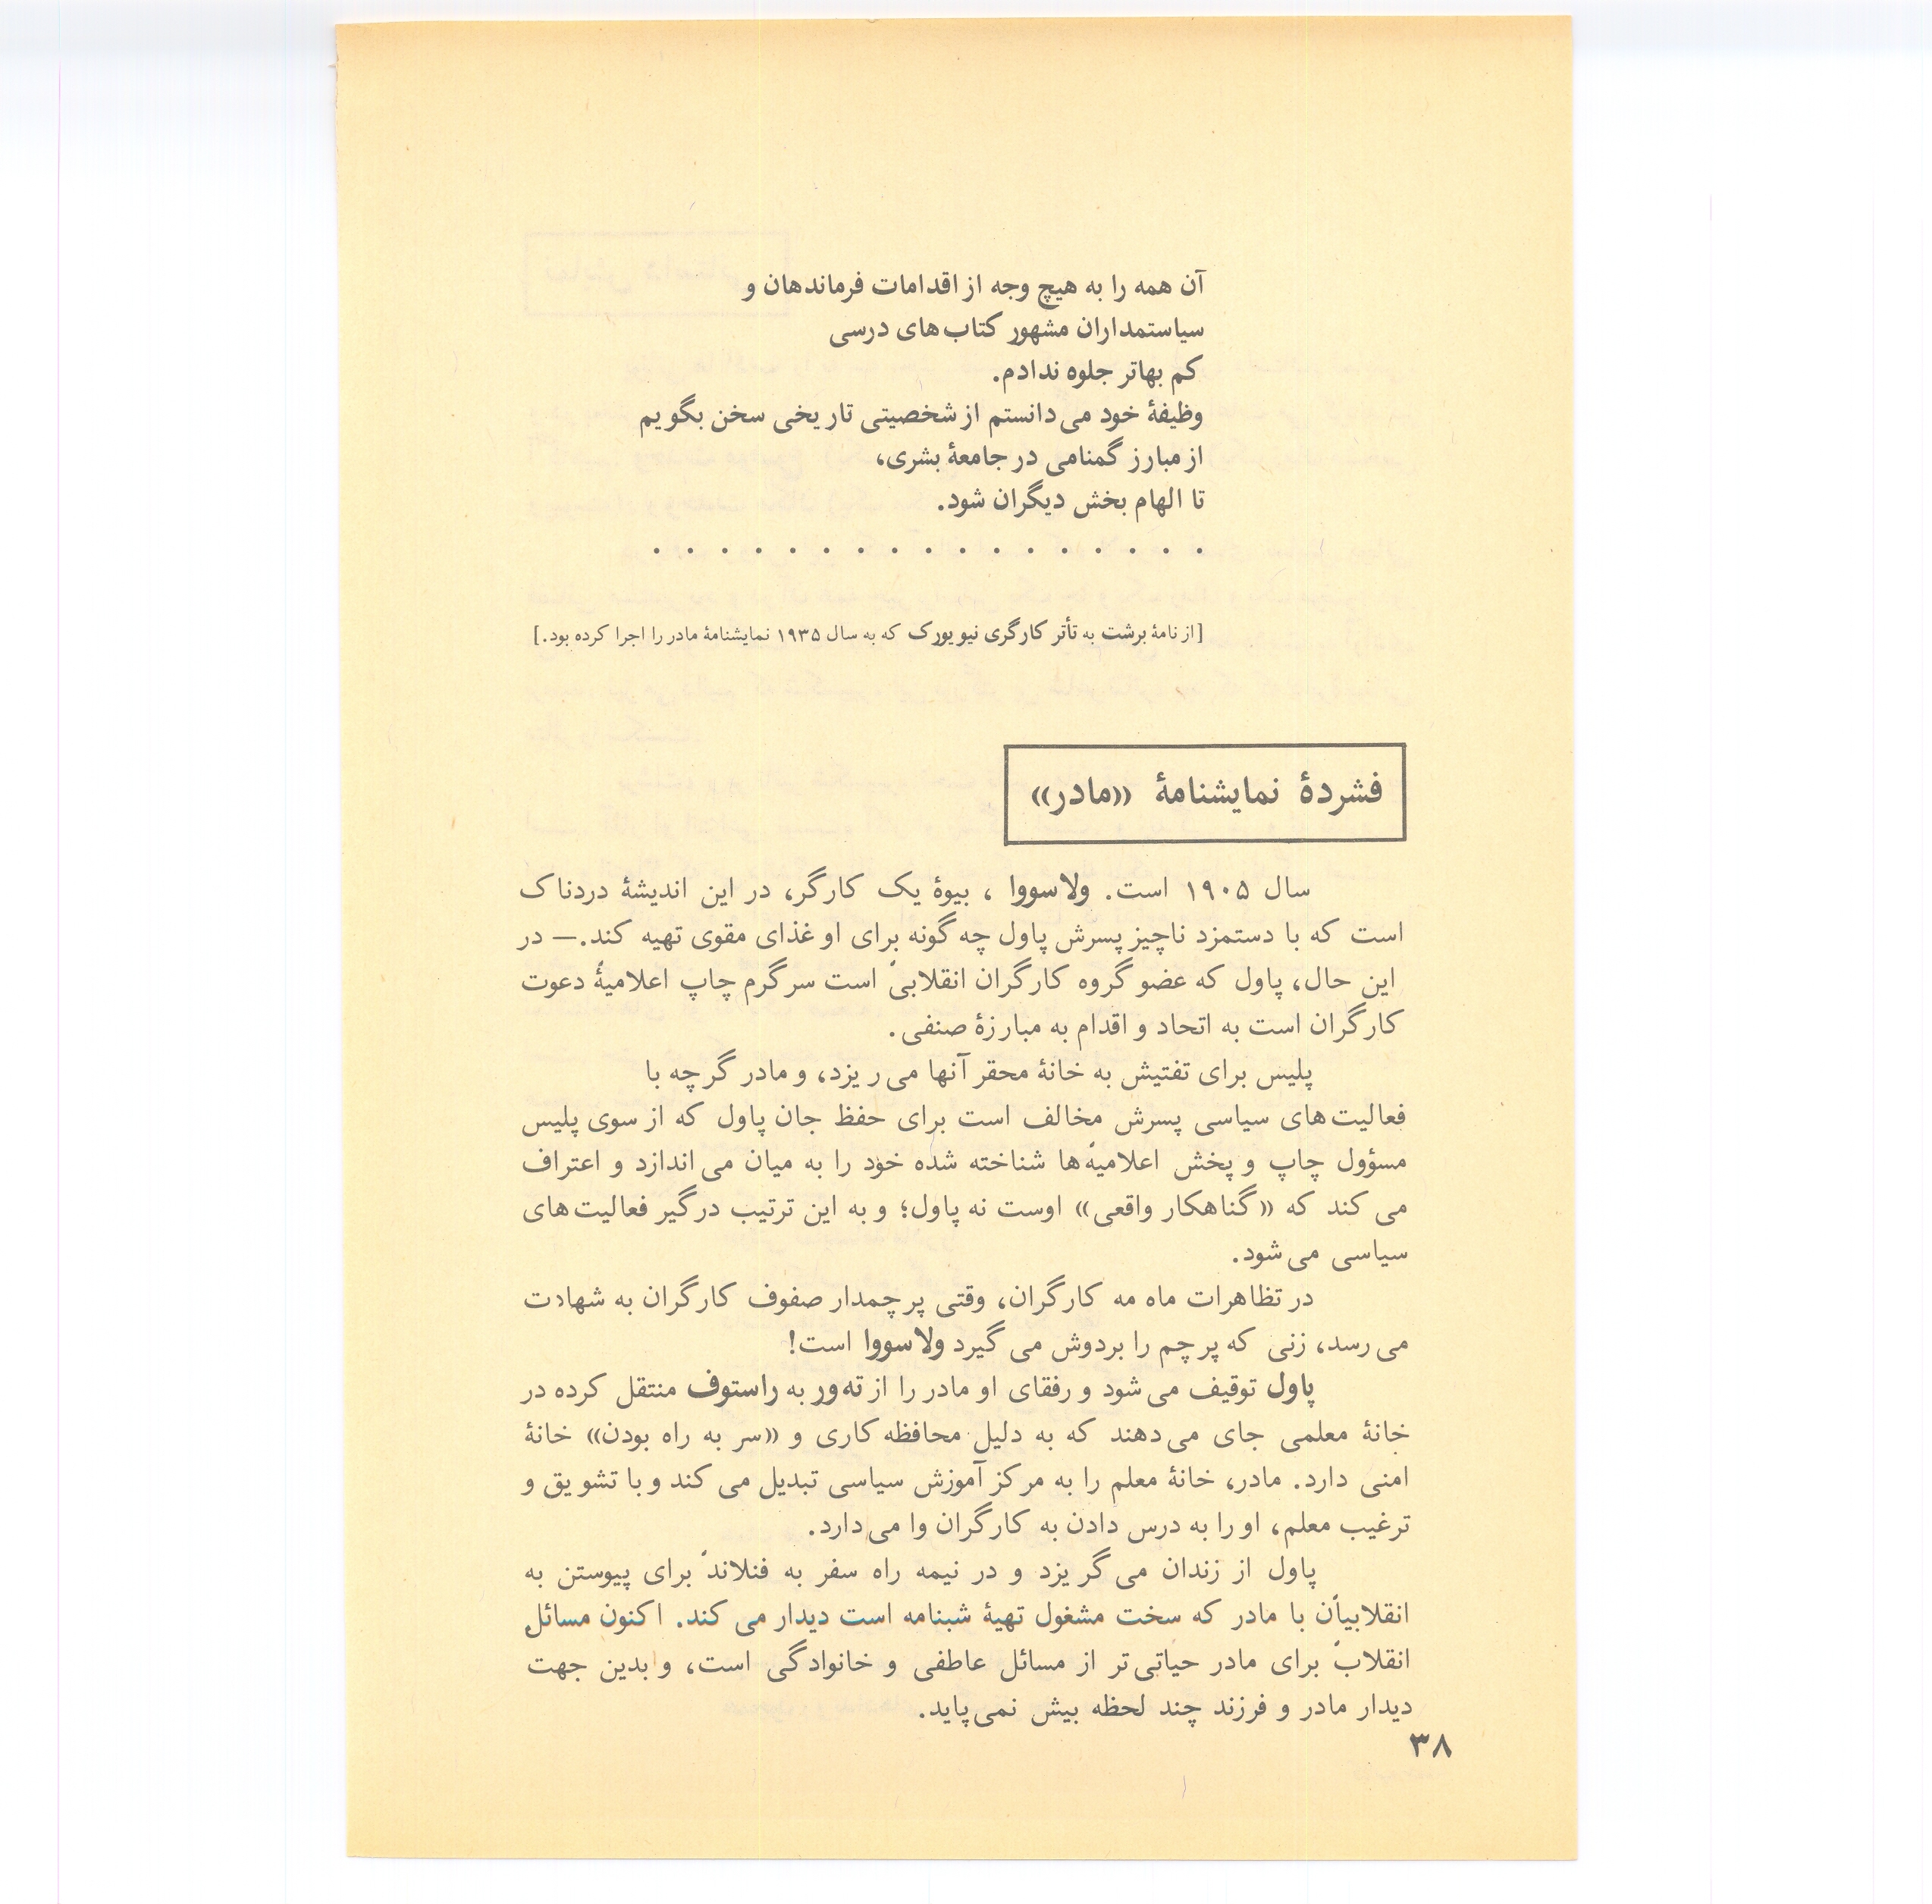 آن همه را به هیچ وجه از اقدامات فرماندهان و
سیاستمداران مشهور کتاب‌های درسی
کم بهاتر جلوه ندادم.
وظیفۀ خود می‌دانستم از شخصیتی تاریخی سخن بگویم
از مبارز گمنامی در جامعۀ بشری،
تا الهام بخش دیگران شود.
. . . . . . . . . . . . . . . . .
[از نامۀ برشت به تأتر کارگری نیویورک که به سال ۱۹۳۵ نمایشنامۀ مادر را اجرا کرده بود.]
فشردۀ نمایشنامۀ «مادر»
سال ۱۹۰۵ است. ولاسووا ، بیوۀ یک کارگر، در این اندیشۀ دردناک
است که با دستمزد ناچیز پسرش پاول چه گونه برای او غذای مقوی تهیه کند.— در
این حال، پاول که عضو گروه کارگران انقلابی است سرگرم چاپ اعلامیۀ دعوت
کارگران است به اتحاد و اقدام به مبارزۀ صنفی.
پلیس برای تفتیش به خانۀ محقر آنها می‌ریزد، و مادر گرچه با
فعالیت‌های سیاسی پسرش مخالف است برای حفظ جان پاول که از سوی پلیس
مسؤول چاپ و پخش اعلامیه‌ها شناخته شده خود را به میان می‌اندازد و اعتراف
می‌کند که «گناهکار واقعی» اوست نه پاول؛ و به این ترتیب درگیر فعالیت‌های
سیاسی می‌شود.
در تظاهرات ماه مه کارگران، وقتی پرچمدار صفوف کارگران به شهادت
می‌رسد، زنی که پرچم را بردوش می‌گیرد ولاسووا است!
پاول توقیف می‌شود و رفقای او مادر را از ته‌ور به راستوف منتقل کرده در
خانۀ معلمی جای می‌دهند که به دلیل محافظه‌کاری و «سر به راه بودن» خانۀ
امنی دارد. مادر، خانۀ معلم را به مرکز آموزش سیاسی تبدیل می‌کند و با تشویق و
ترغیب معلم، او را به درس دادن به کارگران وا می‌دارد.
پاول از زندان می‌گریزد و در نیمه راه سفر به فنلاند برای پیوستن به
انقلابیان با مادر که سخت مشغول تهیۀ شبنامه است دیدار می‌کند. اکنون مسائل
انقلاب برای مادر حیاتی‌تر از مسائل عاطفی و خانوادگی است، و بدین جهت
دیدار مادر و فرزند چند لحظه بیش نمی‌پاید.
۳۸